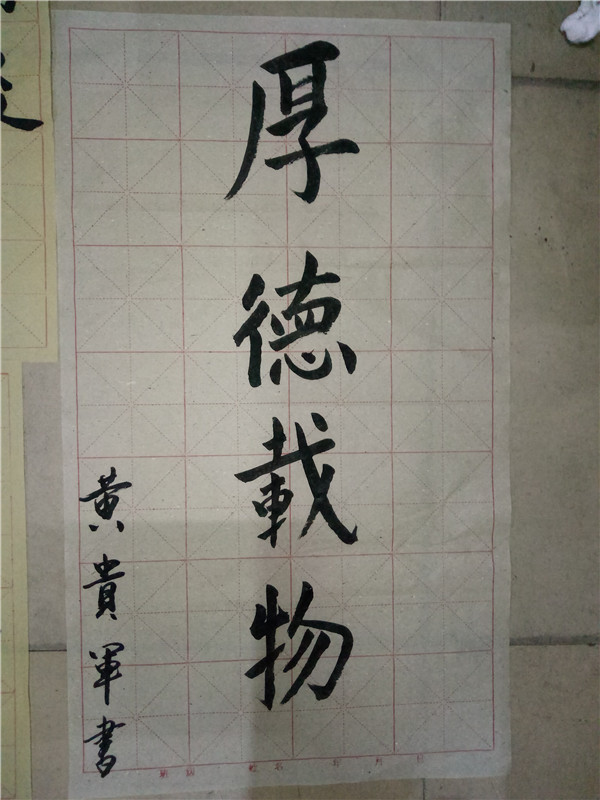 厚德載物
黄貴軍書